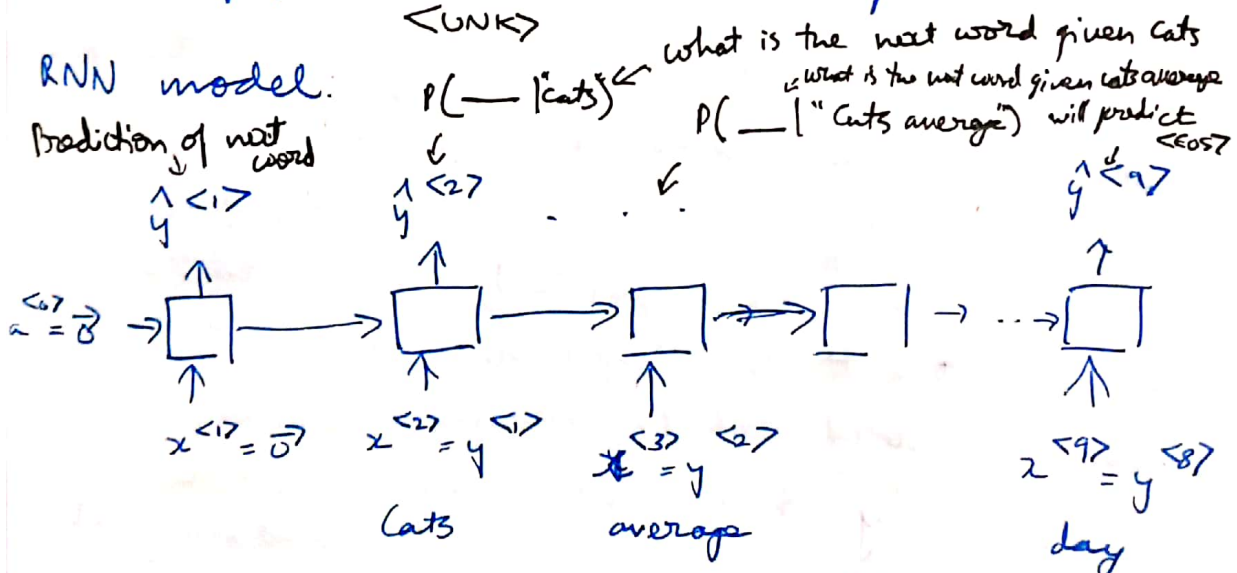 <UNK>
what is the next word given Cats
RNN model:
P(___ | "Cats")
what is the next word given cats average
P(__ | "Cats average") will predict
<EOS>
Prediction of next
word
ŷ<1>
ŷ<2>
. . .
ŷ<9>
a<0> = 0⃗
x<1> = 0⃗
x<2> = y<1>
x<3> = y<2>
x<9> = y<8>
Cats
average
day